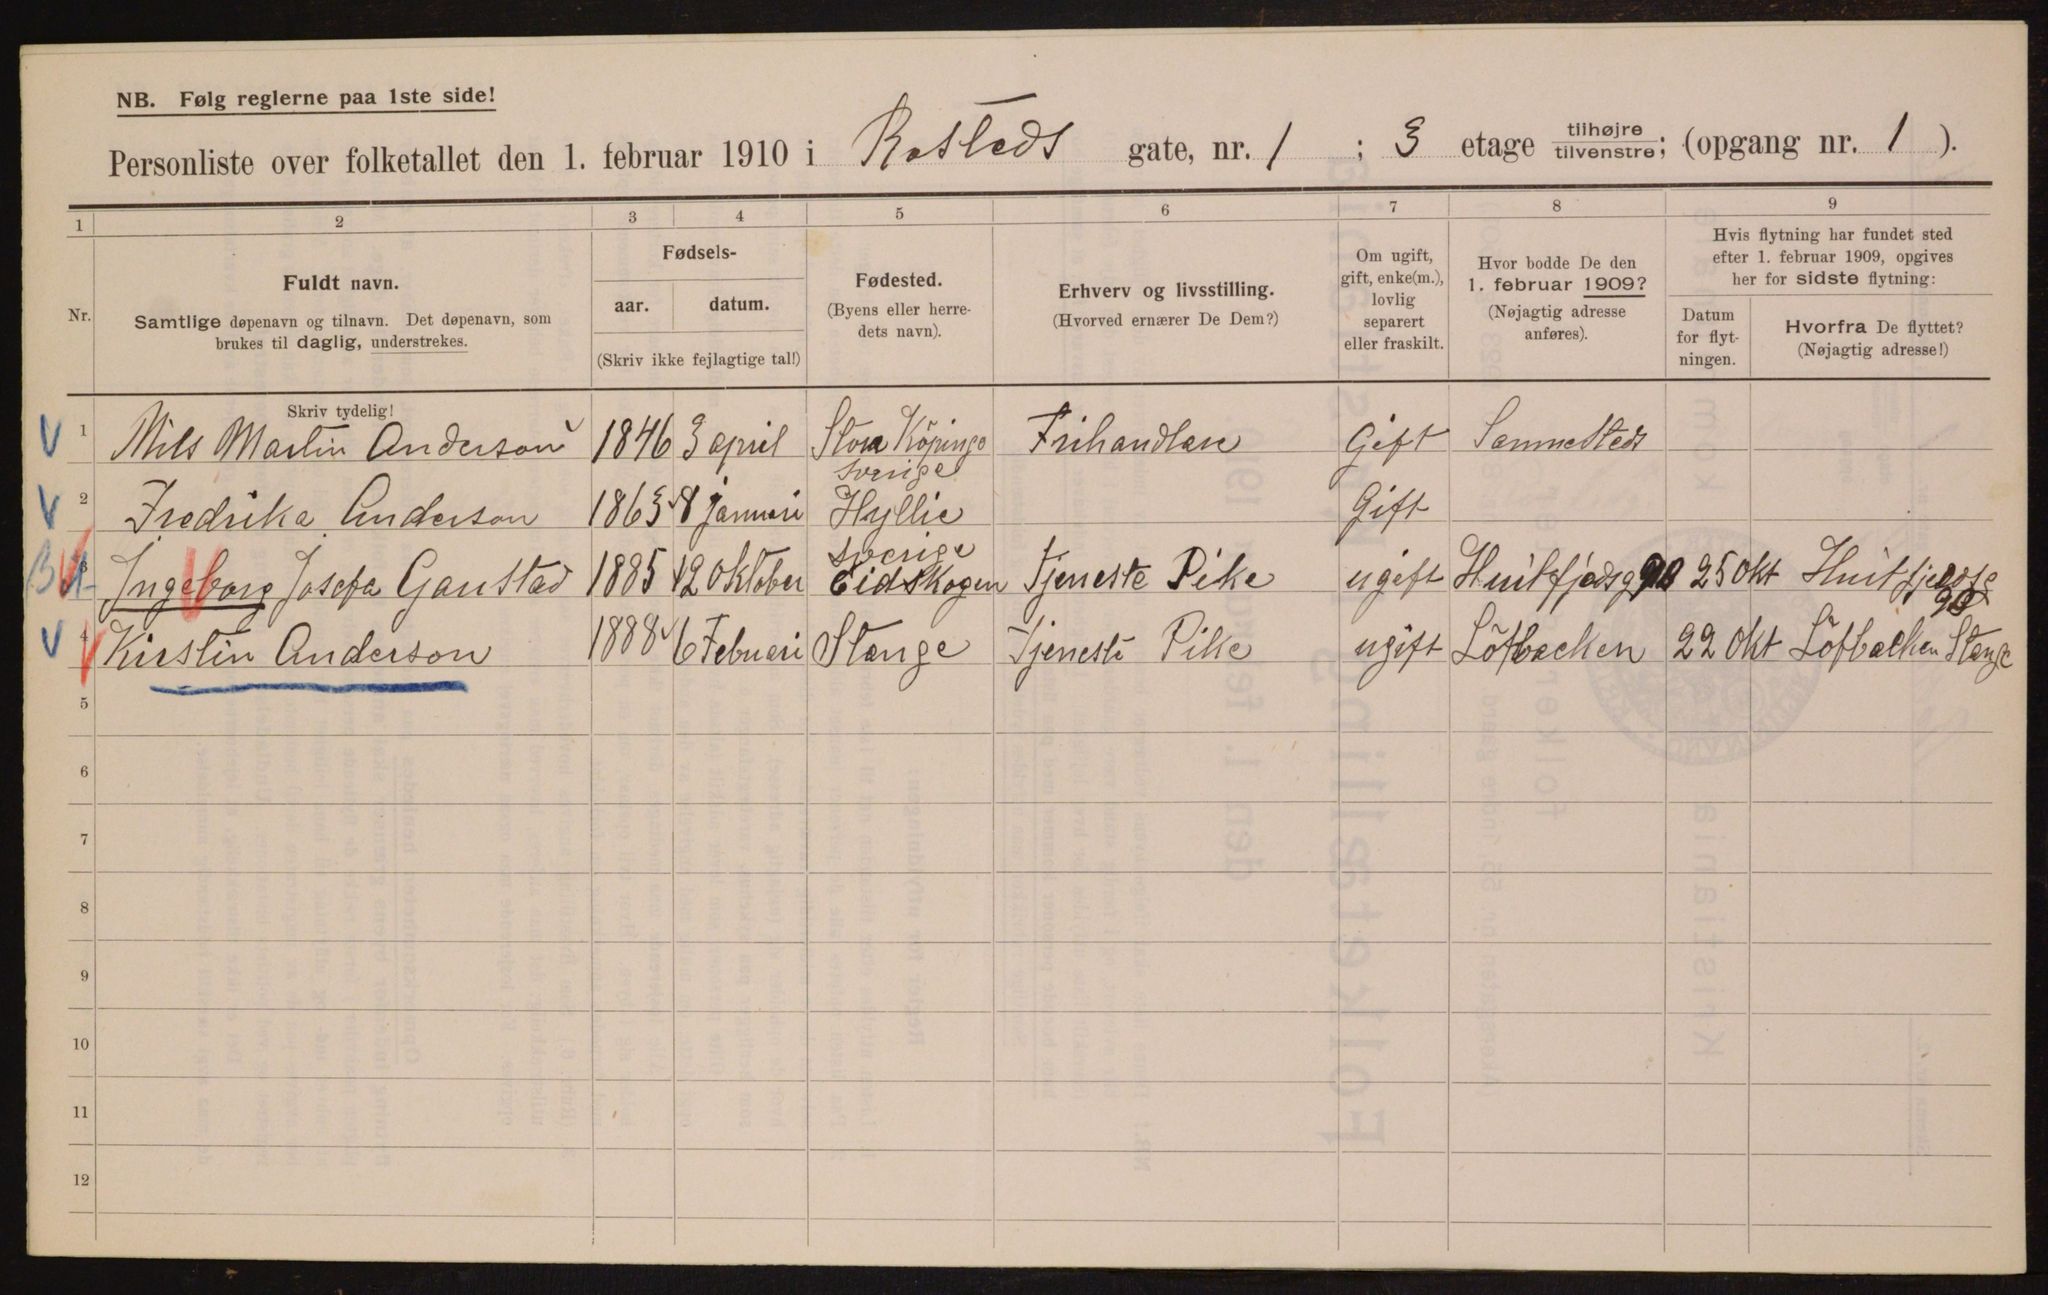 NB. Følg reglerne paa 1ste side!
Personliste over folketallet den 1. februar 1910 i Rosteds gate, nr. 1 ; 3 etage tilhøjre tilvenstre; (opgang nr. 1 ).
1 2 3 4 5 6 7 8 9
Nr.
Fuldt navn.
Samtlige døpenavn og tilnavn. Det døpenavn, som
brukes til daglig, understrekes.
Skriv tydelig!
Fødsels-
aar. datum.
(Skriv ikke fejlagtige tal!)
Fødested.
(Byens eller herre-
dets navn).
Erhverv og livsstilling.
(Hvorved ernærer De Dem?)
Om ugift,
gift, enke(m.),
lovlig
separert
eller fraskilt.
Hvor bodde De den
1. februar 1909?
(Nøjagtig adresse
anføres).
Hvis flytning har fundet sted
efter 1. februar 1909, opgives
her for sidste flytning:
Datum
for flyt-
ningen.
Hvorfra De flyttet?
(Nøjagtig adresse!)
1 Nils Martin Anderson 1846 3 april Stora Köpinge Sverige Frihandlare Gift Sammesteds
2 Fredrika Anderson 1863 8 januari Hyllie Sverige Gift
3 Ingeborg Josefa Ganstad 1885 12 Oktober Eidskogen Tjeneste Pike ugift Huitfjedsg 25 Okt
4 Kirstin Anderson 1888 6 Februari Stange Tjeneste Pike ugift Löfbacken 22 Okt Löfbacken Stange
5
6
7
8
9
10
11
12